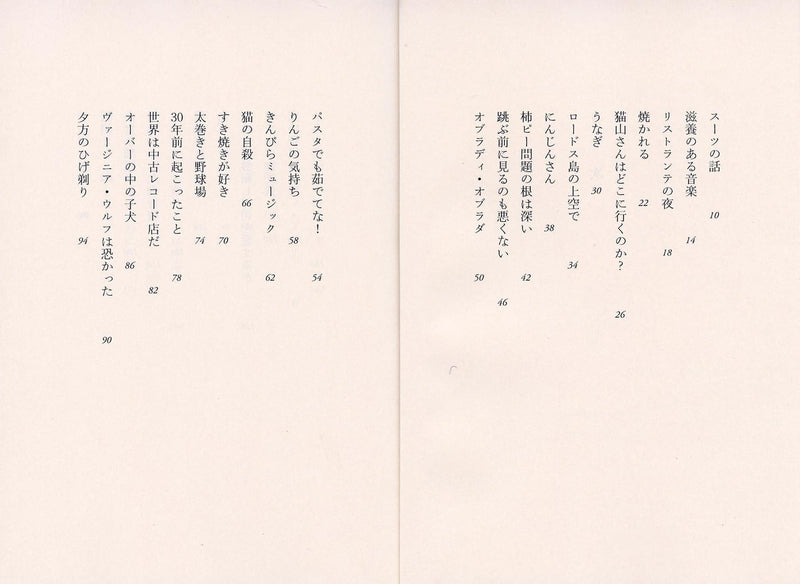 スーツの話 10
滋養のある音楽 14
リストランテの夜 18
焼かれる 22
猫山さんはどこに行くのか? 26
うなぎ 30
ロードス島の上空で 34
にんじんさん 38
柿ピー問題の根は深い 42
跳ぶ前に見るのも悪くない 46
オブラディ・オブラダ 50
パスタでも茹でてな! 54
りんごの気持ち 58
きんぴらミュージック 62
猫の自殺 66
すき焼きが好き 70
太巻きと野球場 74
30年前に起こったこと 78
世界は中古レコード店だ 82
オーバーの中の子犬 86
ヴァージニア・ウルフは恐かった 90
夕方のひげ剃り 94